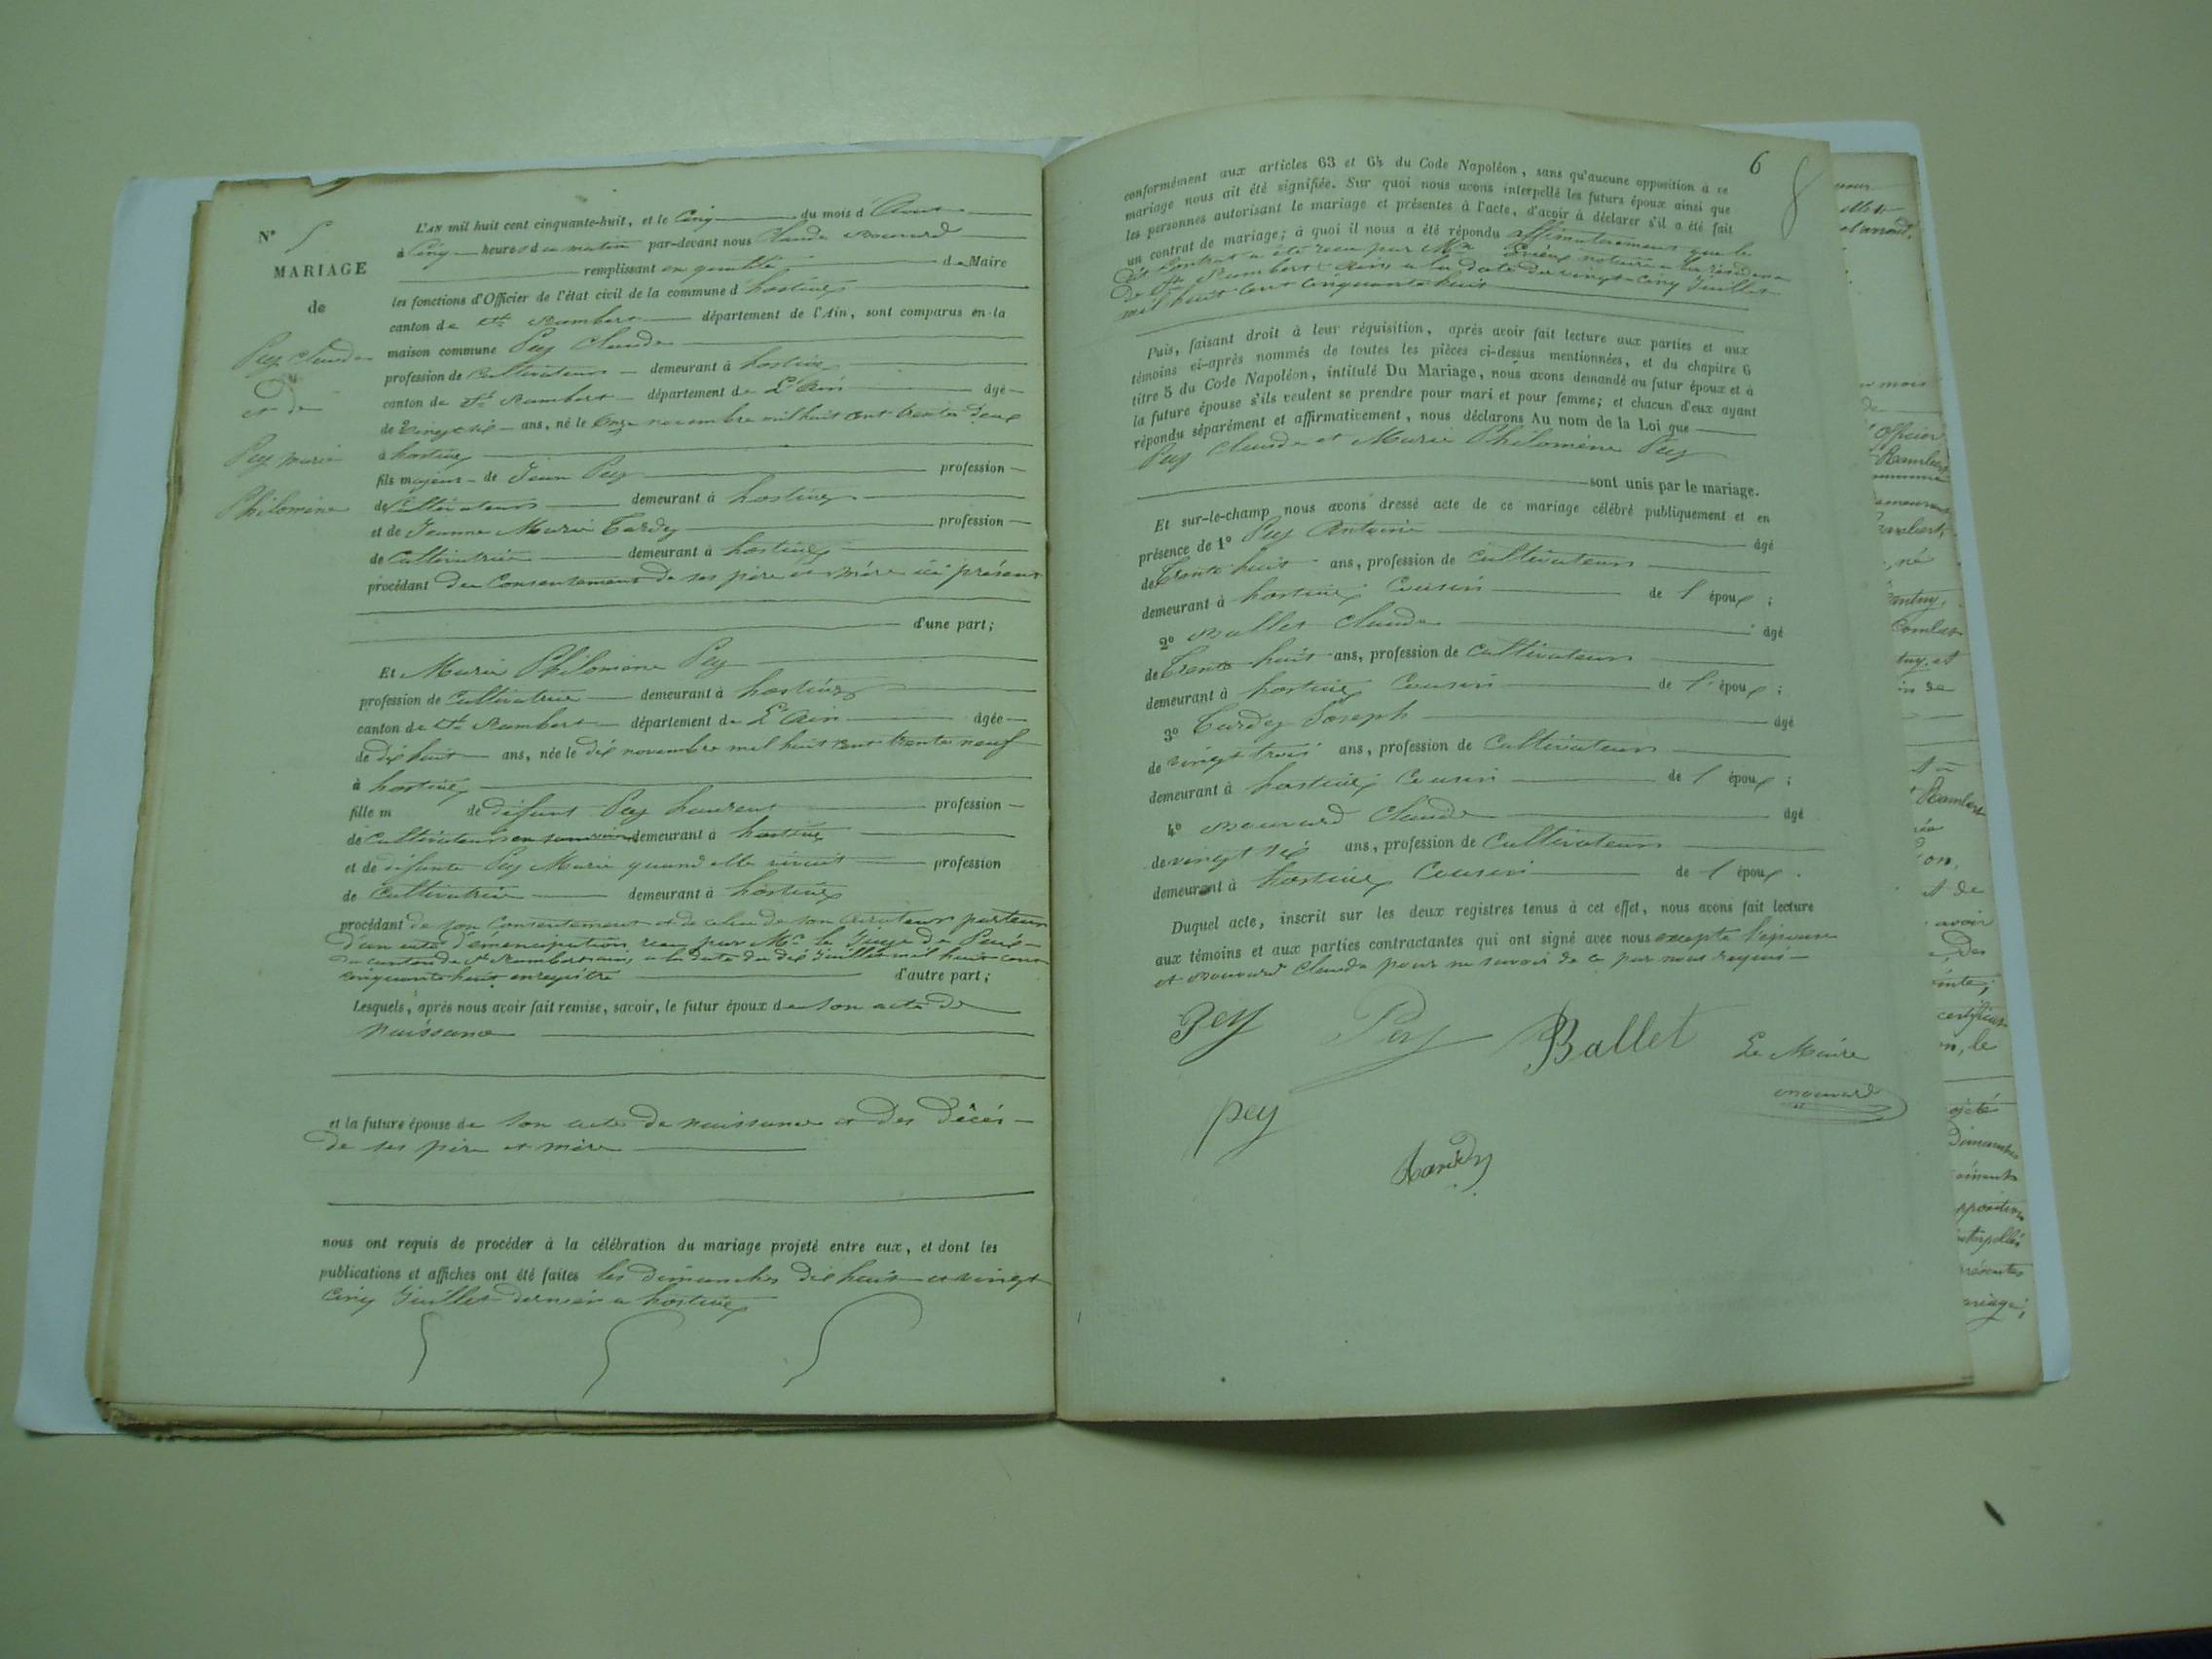 N° 5
MARIAGE
de
Pey Claude
et de
Pey Marie
Philomène
L'AN mil huit cent cinquante-huit, et le Cinq du mois d'Aout
à Cinq heures du matin par-devant nous Claude
remplissant en qualité de Maire
les fonctions d'Officier de l'état civil de la commune d'hostiaz
canton de St Rambert département de l'Ain, sont comparus en la
maison commune Pey Claude
profession de Cultivateur demeurant à hostiaz
canton de St Rambert département de L'Ain âgé
de vingt six ans, né le onze novembre mil huit cent trente deux
à hostiaz
fils majeur de Jean Pey profession
de Cultivateur demeurant à hostiaz
et de Jeanne Marie Tardy profession
de Cultivatrice demeurant à hostiaz
procédant du Consentement de ses père et mère ici présent
d'une part;
Et Marie Philomène Pey
profession de Cultivatrice demeurant à hostiaz
canton de St Rambert département de L'Ain âgée
de dix huit ans, née le dix novembre mil huit cent trente neuf
à hostiaz
fille m de défunt Pey Laurent profession
de Cultivateur en son vivant demeurant à hostiaz
et de défunte Pey Marie quand elle vivait profession
de Cultivatrice demeurant à hostiaz
procédant de son Consentement et de celui de son Curateur porteur
d'un acte d'émancipation reçu par Mr le Juge de Paix
du canton de St Rambert ain, a la date du dix Juillet mil huit cent
cinquante huit enregistré d'autre part;
Lesquels, après nous avoir fait remise, savoir, le futur époux de son acte de
naissance
et la future épouse de son acte de naissance et des décès
de ses père et mère
nous ont requis de procéder à la célébration du mariage projeté entre eux, et dont les
publications et affiches ont été faites les dimanches dix huit et vingt
cinq Juillet dernier a hostiaz
6
conformément aux articles 63 et 64 du Code Napoléon, sans qu'aucune opposition à ce
mariage nous ait été signifiée. Sur quoi nous avons interpellé les futurs époux ainsi que
les personnes autorisant le mariage et présentes à l'acte, d'avoir à déclarer s'il a été fait
un contrat de mariage; à quoi il nous a été répondu affirmativement que le
dit Contrat a été reçu par Me notaire a la résidence
de St Rambert Ain a la date du vingt Cinq Juillet
mil huit cent cinquante huit
Puis, faisant droit à leur réquisition, après avoir fait lecture aux parties et aux
témoins ci-après nommés de toutes les pièces ci-dessus mentionnées, et du chapitre 6
titre 5 du Code Napoléon, intitulé Du Mariage, nous avons demandé au futur époux et à
la future épouse s'ils veulent se prendre pour mari et pour femme; et chacun d'eux ayant
répondu séparément et affirmativement, nous déclarons Au nom de la Loi que
Pey Claude et Marie Philomène Pey
sont unis par le mariage.
Et sur-le-champ nous avons dressé acte de ce mariage célébré publiquement et en
présence de 1° Pey Antoine âgé
de Trente huit ans, profession de Cultivateur
demeurant à hostiaz Cousin de l'époux;
2° Ballet Claude âgé
de Trente huit ans, profession de Cultivateur
demeurant à hostiaz Cousin de l'époux;
3° Tardy Joseph âgé
de vingt trois ans, profession de Cultivateur
demeurant à hostiaz Cousin de l'époux;
4° Claude âgé
de vingt six ans, profession de Cultivateur
demeurant à hostiaz Cousin de l'époux.
Duquel acte, inscrit sur les deux registres tenus à cet effet, nous avons fait lecture
aux témoins et aux parties contractantes qui ont signé avec nous excepté l'épouse
et Claude pour ne savoir de ce par nous requis
Pey Pey Ballet Le Maire
pey
tardy